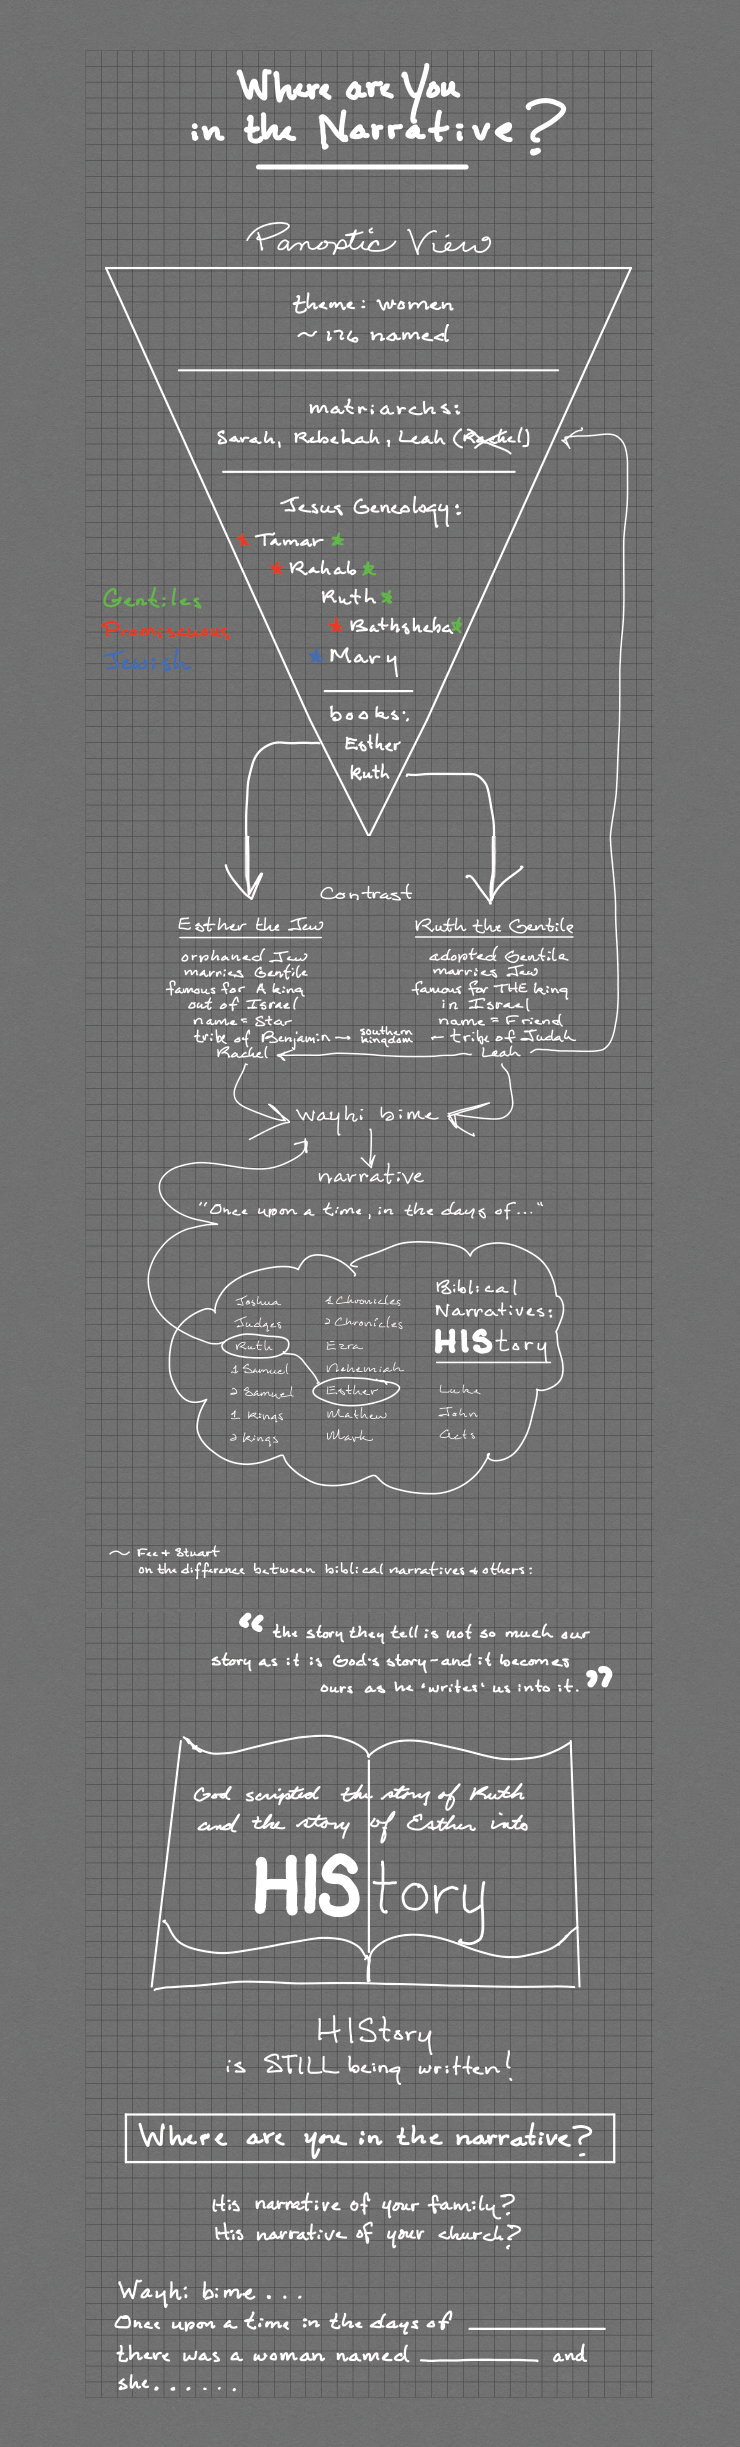 Where are You
in the Narrative?
Panoptic View
theme: women
~ 176 named
matriarchs:
Sarah, Rebekah, Leah (Rachel)
Jesus Geneology:
Tamar
Rahab
Ruth
Bathsheba
Mary
Gentiles
Promiscuous
Jewish
books:
Esther
Ruth
Contrast
Esther the Jew
orphaned Jew
marries Gentile
famous for A king
out of Israel
name = Star
tribe of Benjamin
Rachel
southern
kingdom
Ruth the Gentile
adopted Gentile
marries Jew
famous for THE king
in Israel
name = Friend
tribe of Judah
Leah
wayhi bime
narrative
"Once upon a time, in the days of..."
Joshua
Judges
Ruth
1 Samuel
2 Samuel
1 Kings
2 Kings
1 Chronicles
2 Chronicles
Ezra
Nehemiah
Esther
Mathew
Mark
Biblical
Narratives:
HIStory
Luke
John
Acts
~ Fee + Stuart
on the difference between biblical narratives + others:
" the story they tell is not so much our
story as it is God's story - and it becomes
ours as he 'writes' us into it. "
God scripted the story of Ruth
and the story of Esther into
HIStory
HIStory
is STILL being written!
Where are you in the narrative?
His narrative of your family?
His narrative of your church?
Wayhi bime ...
Once upon a time in the days of ________
there was a woman named ________ and
she......